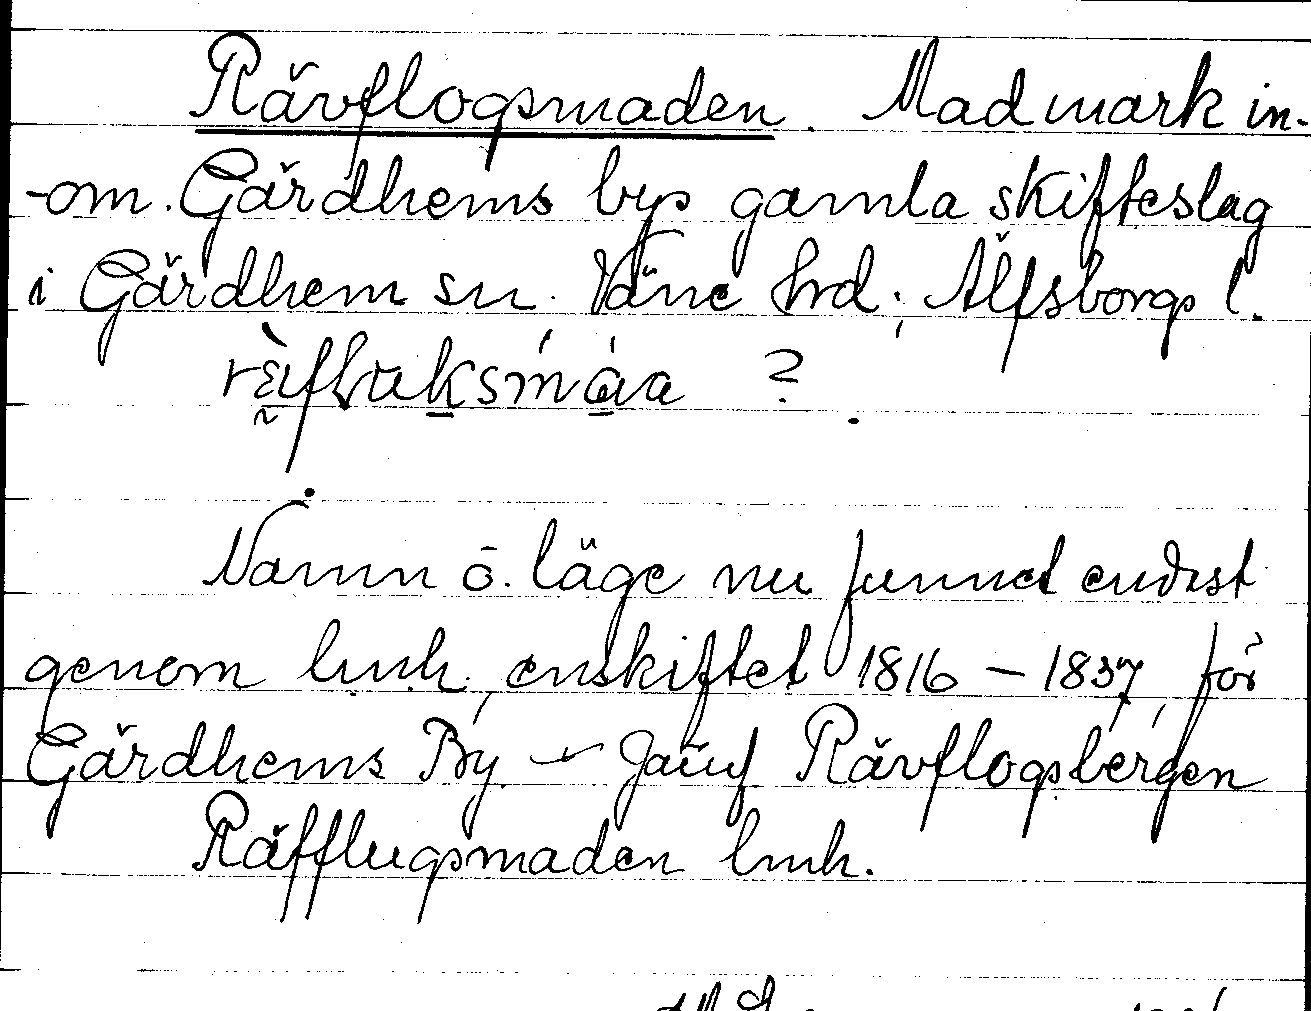 Rävflogsmaden. Madmark in-
-om. Gärdhems bys gamla skifteslag
i Gärdhem sn. Väne hrd; Älfsborgs l.
?
Namn o. läge nu funnet endast
genom lmh. enskiftet 1816 – 1837, för
Gärdhems By – Jämf Rävflogsbergen
Räfflugsmaden lmh.